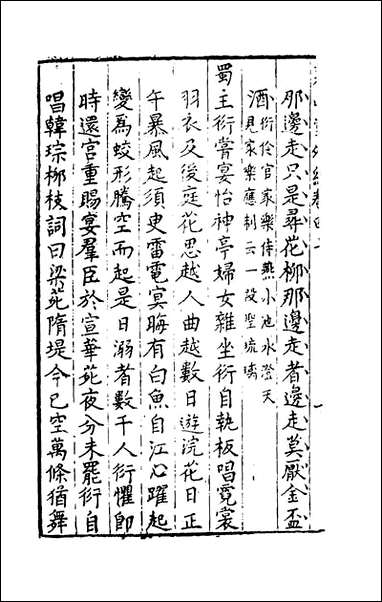 那邊走只是尋花柳那邊走者邊走莫厭金盃
酒衍伶官家樂侍燕小池水澄天
見家樂應制云一段聖琉璃
蜀主衍嘗宴怡神亭婦女雜坐衍自執板唱霓裳
羽衣及後庭花思越人曲越數日遊浣花日正
午暴風起須臾雷電冥晦有白魚自江心躍起
變爲蛟形騰空而起是日溺者數千人衍懼卽
時還宮重賜宴羣臣於宣華苑夜分未罷衍自
唱韓琮柳枝詞曰梁苑隋堤今已空萬條猶舞